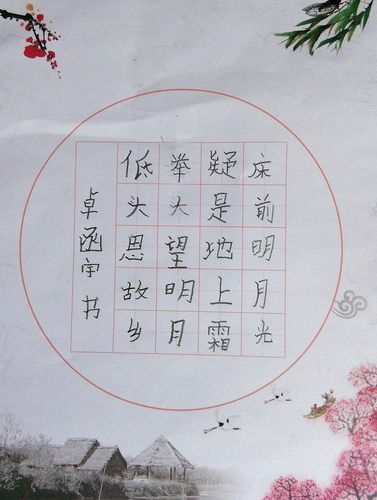 床前明月光
疑是地上霜
举头望明月
低头思故乡
卓函宇书